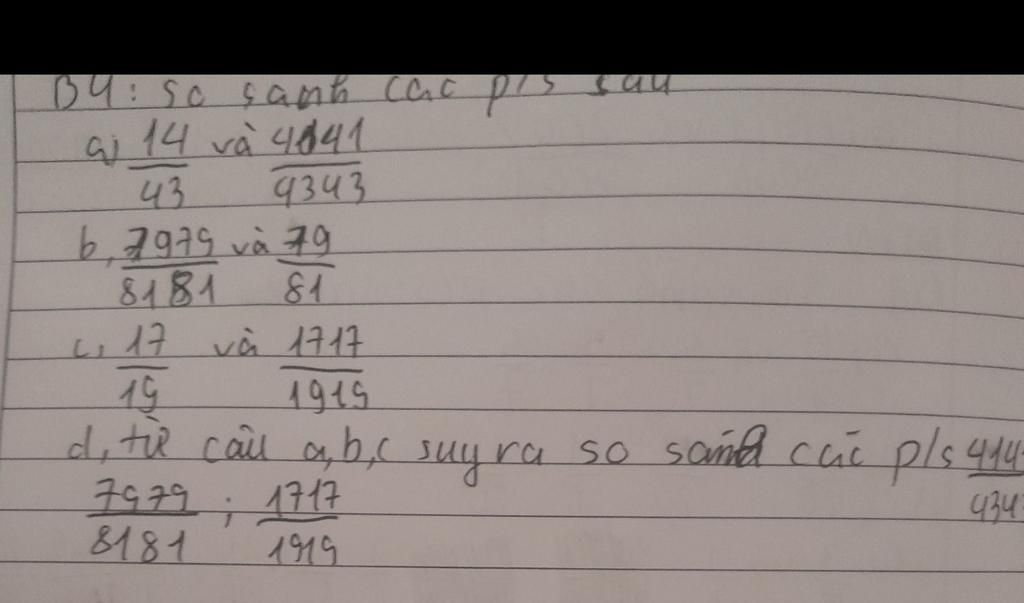 B4: so sanh cac p/s sau
a) 14/43 và 4141/4343
b, 7979/8181 và 79/81
c, 17/19 và 1717/1919
d, từ câu a,b,c suy ra so sánh các p/s 414/434
7979/8181 ; 1717/1919